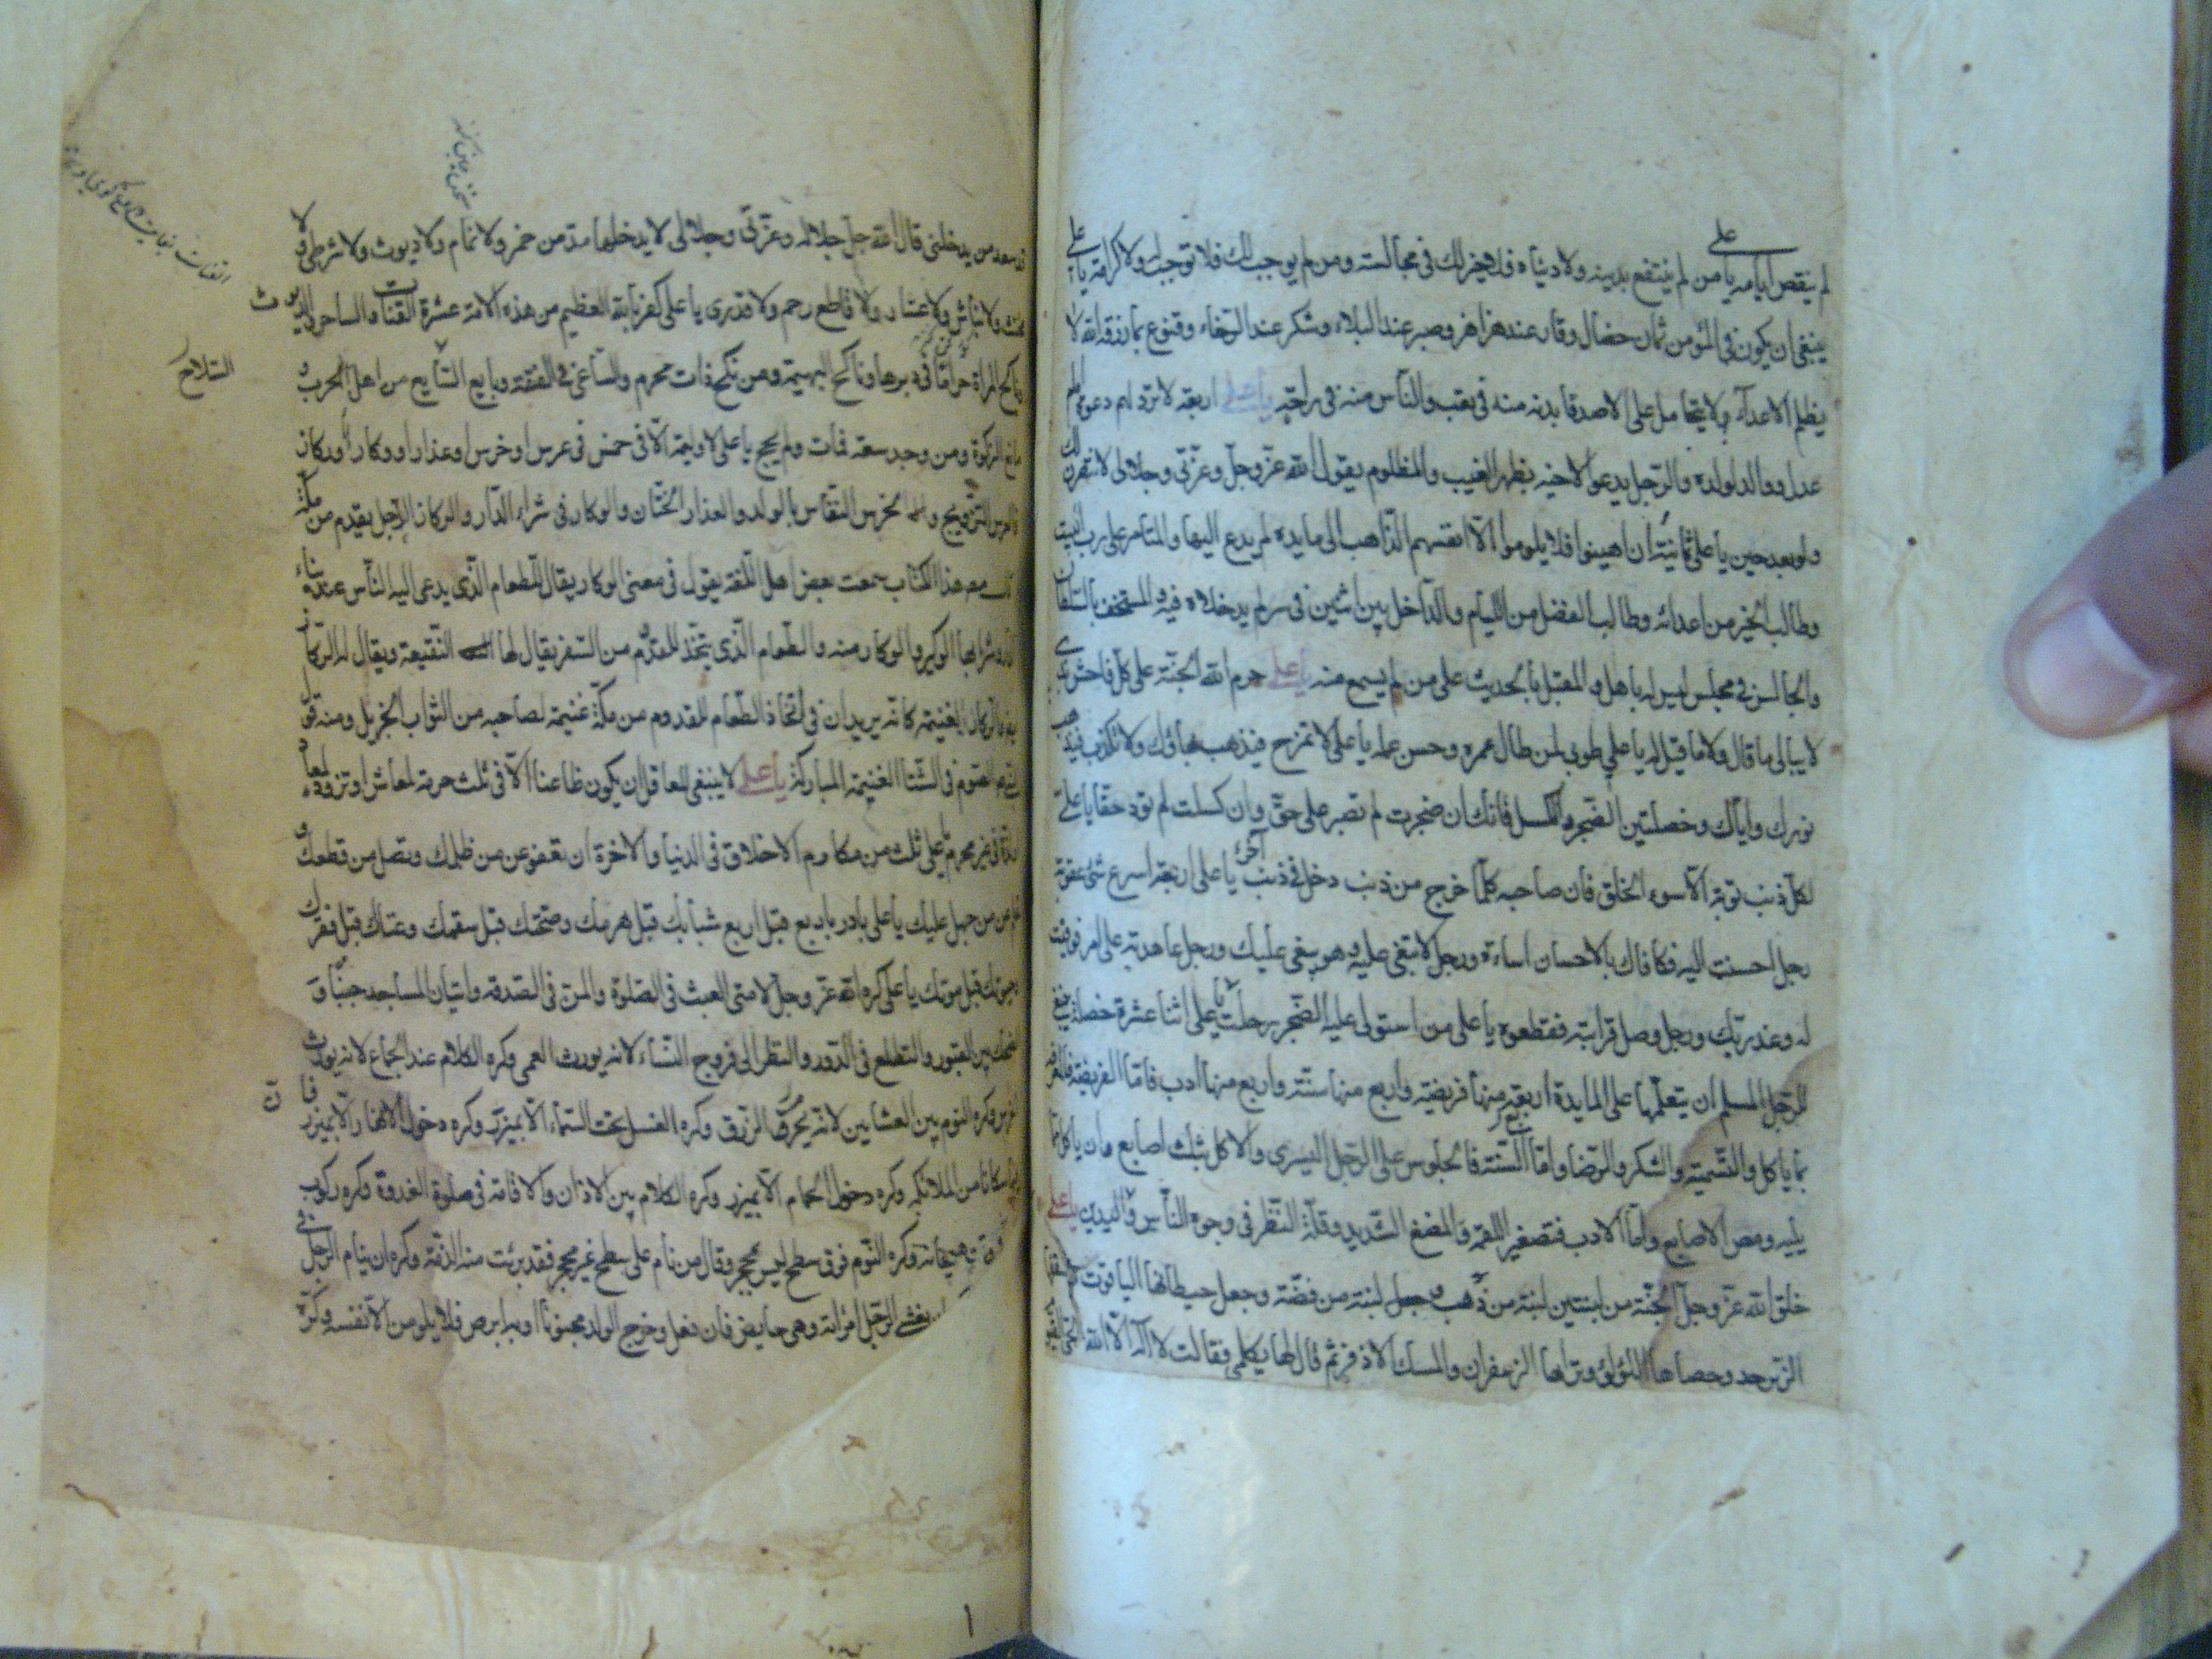 علي
لم ينقص أيامه يا من لم ينتفع بدينه ولا دنياه فلا خير لك في مجالسته ومن لم يوجب لك فلا توجب له ولا كرامة يا علي
ينبغي ان يكون في المؤمن ثمان خصال وقار عند هزاهز وصبر عند البلاء وشكر عند الرخاء وقنوع بما رزقه الله لا
يظلم الاعداء ولا يتحامل على الاصدقا بدنه منه في تعب والناس منه في راحة يا علي اربعة لا ترد لهم دعوة امام
عدل ووالد لولده والرجل يدعو لاخيه بظهر الغيب والمظلوم يقول الله عز وجل وعزتي وجلالي لانتصرن لك
ولو بعد حين يا علي ثمانية ان اهينوا فلا يلوموا الا انفسهم الذاهب الى مايدة لم يدع اليها والمتامر على رب البيت
وطالب الخير من اعدائه وطالب الفضل من الليام والداخل بين اثنين في سر لم يدخلاه فيه والمستخف بالسلطان
والجالس في مجلس ليس له باهل والمقبل بالحديث على من لم يسمع منه يا علي حرم الله الجنة على كل فاحش بذي
لا يبالي ما قال ولا ما قيل له يا علي طوبى لمن طال عمره وحسن عمله يا علي لا تمزح فيذهب بهاؤك ولا تكذب فيذهب
نورك واياك وخصلتين الضجر والكسل فانك ان ضجرت لم تصبر على حق وان كسلت لم تؤد حقا يا علي
لكل ذنب توبة الا سوء الخلق فان صاحبه كلما خرج من ذنب دخل في ذنب آخر يا علي اربعة اسرع شئ عقوبة
رجل احسنت اليه فكافاك بالاحسان اساءة ورجل لا تبغي عليه وهو يبغي عليك ورجل عاهدته على امر فوفيت
له وغدر بك ورجل وصل قرابته فقطعوه يا علي من استولى عليه الضجر رحلت يا علي اثنا عشرة خصلة ينبغي
للرجل المسلم ان يتعلمها على المايدة اربعة منها فريضة واربع منها سنة واربع منها ادب فاما الفريضة فالمعرفة
بما ياكل والتسمية والشكر والرضا واما السنة فالجلوس على الرجل اليسرى والاكل بثلث اصابع وان ياكل مما
يليه ومص الاصابع واما الادب فتصغير اللقمة والمضغ الشديد وقلة النظر في وجوه الناس وغسل اليدين يا علي
خلق الله عز وجل الجنة من لبنتين لبنة من ذهب ولبنة من فضة وجعل حيطانها الياقوت
الزبرجد وحصاها اللؤلؤ وترابها الزعفران والمسك الاذفر ثم قال لها تكلمي فقالت لا اله الا الله الحي القيوم
قد سعد من يدخلني قال الله جل جلاله وعزتي وجلالي لا يدخلها مدمن خمر ولا نمام ولا ديوث ولا شرطي ولا
مخنث ولا نباش ولا عشار ولا قاطع رحم ولا قدري يا علي كفر بالله العظيم من هذه الامة عشرة القتات والساحر والديوث
وناكح المراة حراما في دبرها وناكح البهيمة ومن نكح ذات محرم والساعي في الفتنة وبايع السلاح من اهل الحرب و
السلاح
مانع الزكوة ومن وجد سعة فمات ولم يحج يا علي لا وليمة الا في خمس في عرس او خرس او عذار او وكار او ركاز
فالعرس التزويج والخرس النفاس بالولد والعذار الختان والوكار في شراء الدار والركاز الرجل يقدم من مكة
مصنف هذا الكتاب سمعت بعض اهل اللغة يقول في معنى الوكار يقال للطعام الذي يدعى اليه الناس عند بناء
الدار وشرائها الوكيرة والوكار منه والطعام الذي يتخذ للقدوم من السفر يقال لها النقيعة ويقال له الركاز
الركاز الغنيمة كانه يريد ان في اتخاذ الطعام للقدوم من مكة غنيمة لصاحبه من الثواب الجزيل ومنه قول
الصوم في الشتا الغنيمة المباركة يا علي لا ينبغي للعاقل ان يكون ظاعنا الا في ثلث مرمة لمعاش او تزود لمعاد
لذة في غير محرم يا علي ثلث من مكارم الاخلاق في الدنيا والاخرة ان تعفو عن من ظلمك وتصل من قطعك و
تحلم عن من جهل عليك يا علي بادر باربع قبل اربع شبابك قبل هرمك وصحتك قبل سقمك وغناك قبل فقرك
وحيوتك قبل موتك يا علي كره الله عز وجل لامتي العبث في الصلوة والمن في الصدقة واتيان المساجد جنبا و
الضحك بين القبور والتطلع في الدور والنظر الى فروج النساء لانه يورث العمى وكره الكلام عند الجماع لانه يورث
الخرس وكره النوم بين العشايين لانه يحرم الرزق وكره الغسل تحت السماء الا بميزر وكره دخول الانهار الا بميزر فان
فيها سكانا من الملائكة وكره دخول الحمام الا بميزر وكره الكلام بين الاذان والاقامة في صلوة الغدوة وكره ركوب
البحر في وقت هيجانه وكره النوم فوق سطح ليس بمحجر وقال من نام على سطح غير محجر فقد برئت منه الذمة وكره ان ينام الرجل في
يغشى الرجل امراته وهي حايض فان فعل وخرج الولد مجنونا او به برص فلا يلومن الا نفسه وكره